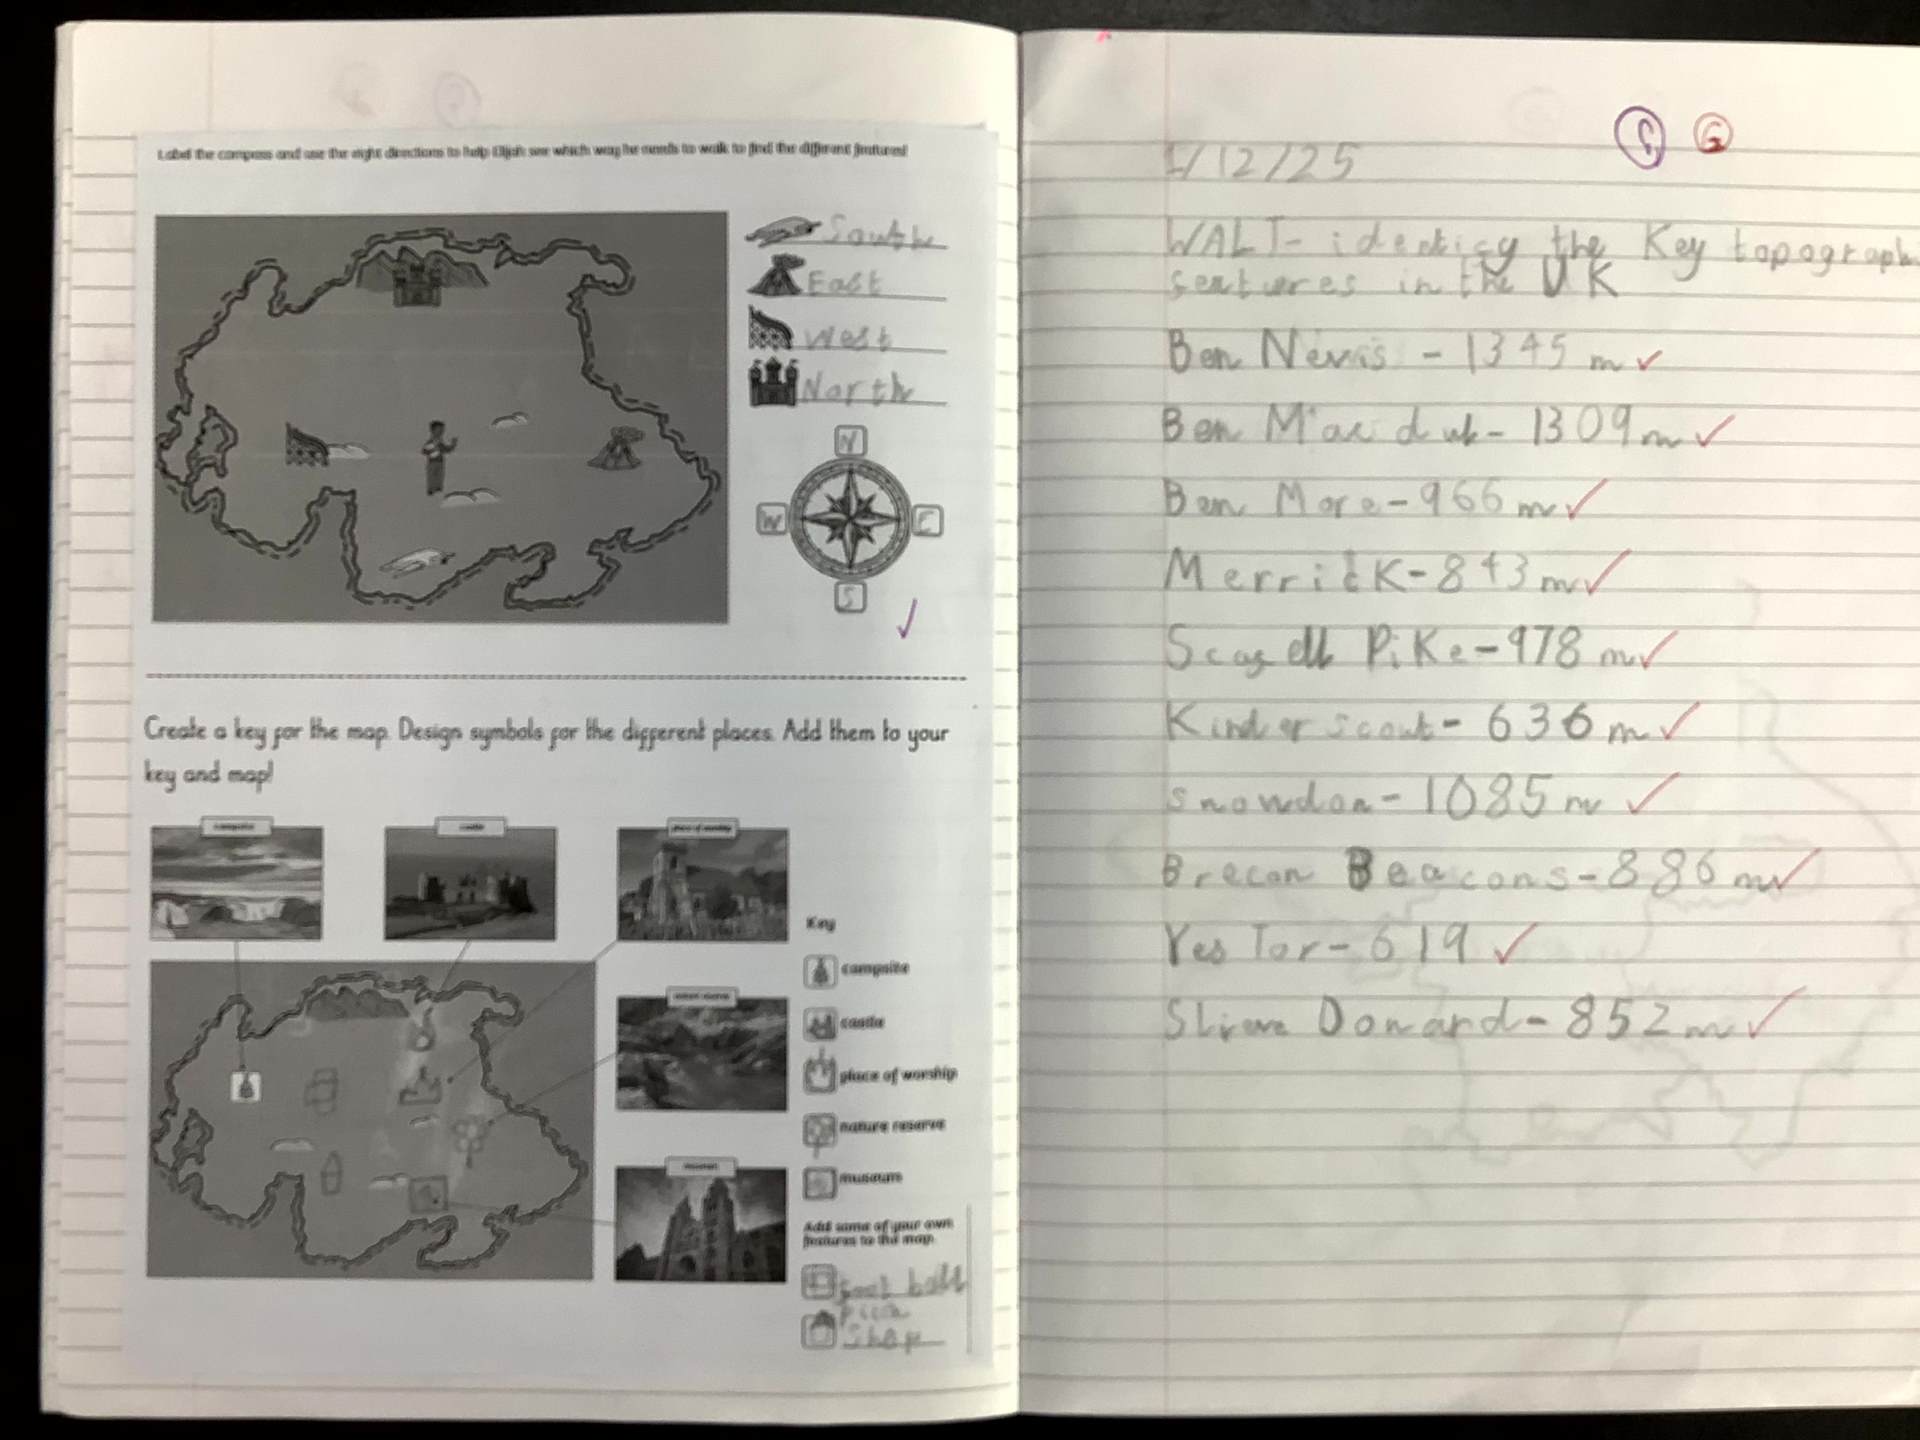 Label the compass and use the eight directions to help Elijah see which way he needs to walk to find the different features!
South
East
West
North
N
W
E
S
Create a key for the map. Design symbols for the different places. Add them to your
key and map!
campsite
castle
place of worship
nature reserve
museum
Key
campsite
castle
place of worship
nature reserve
museum
Add some of your own
features to the map.
foot ball
Shop
/12/25
G
WALT- identify the Key topograph
features in the UK
Ben Nevis - 1345 m
Ben Macdui - 1309 m
Ben More - 966 m
Merrick - 843 m
Scafell Pike - 978 m
Kinder scout - 636 m
snowdon - 1085 m
Brecon Beacons - 886 m
Yes Tor - 619
Slieve Donard - 852 m